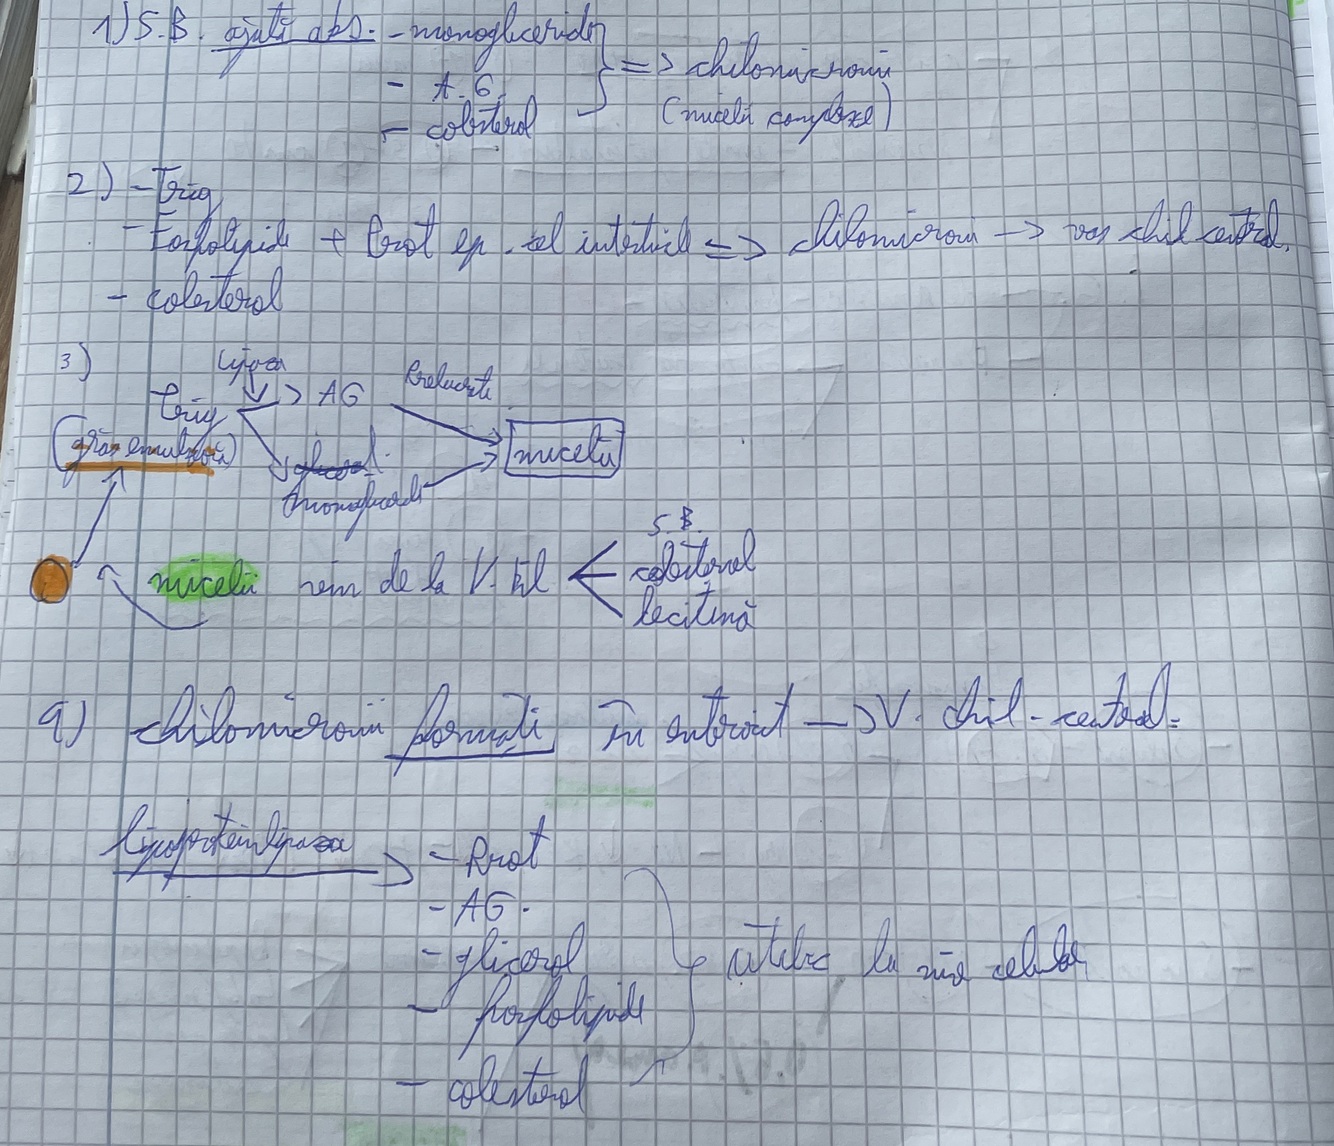 1) S.B. ajută abs. - monogliceride
- A.G.
- colesterol
} => chilomicroni
(micelii complexe)
2) - Trig
- Fosfolipide + Prot ep. intestinale => chilomicroni -> vas chil central.
- colesterol
3)
lipaza
Trig -> AG Preluate
(grăs. emulsion)
glicerol
monogliceride
micelii
S.B.
micelii rem de la V. bil < colesterol
lecitină
4) chilomicronii formați în enterocit -> V. chil. central.
lipoproteinlipaza -> - Prot
- AG.
- glicerol
- fosfolipide
- colesterol
utiliz. la niv celular